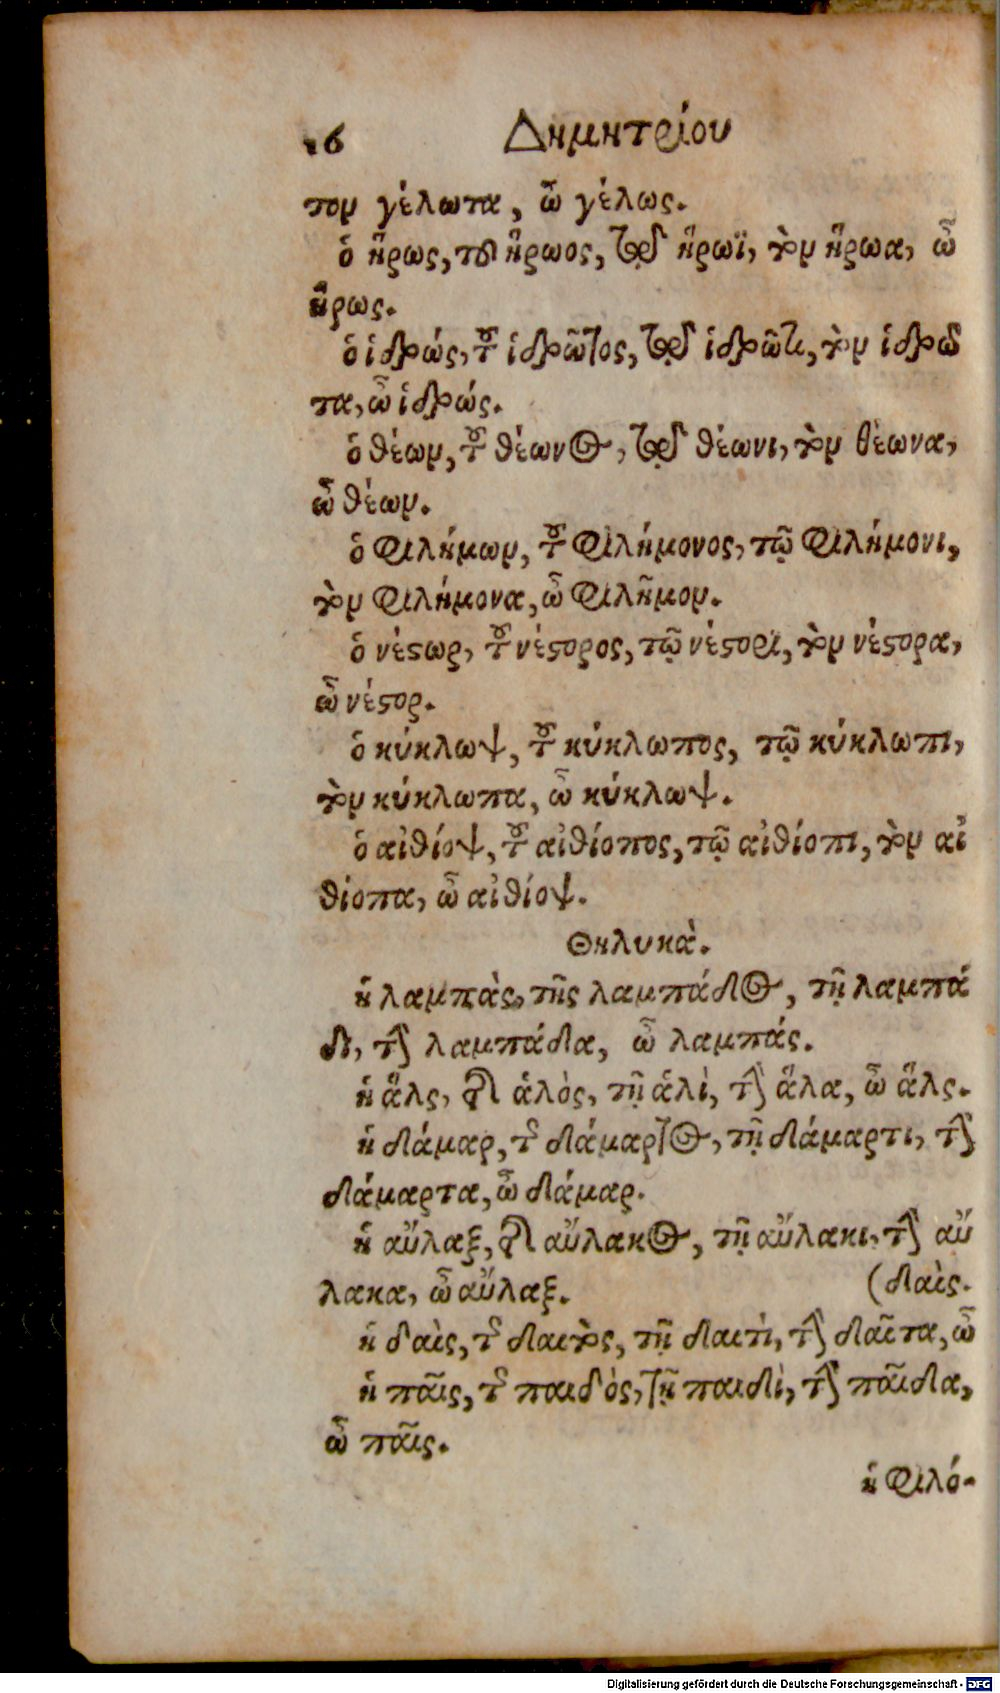 16 Δημητρίου
τον γέλωτα, ὦ γέλως.
ὁ ἥρως, τοῦ ἥρωος, τῷ ἥρωϊ, τὸν ἥρωα, ὦ
ἥρως.
ὁ ἱδρώς, τοῦ ἱδρῶτος, τῷ ἱδρῶτι, τὸν ἱδρῶ
τα, ὦ ἱδρώς.
ὁ θέων, τοῦ θέωνος, τῷ θέωνι, τὸν θέωνα,
ὦ θέων.
ὁ Φιλήμων, τοῦ Φιλήμονος, τῷ Φιλήμονι,
τὸν Φιλήμονα, ὦ Φιλῆμον.
ὁ νέστωρ, τοῦ νέστορος, τῷ νέστορι, τὸν νέστορα,
ὦ νέστορ.
ὁ κύκλωψ, τοῦ κύκλωπος, τῷ κύκλωπι,
τὸν κύκλωπα, ὦ κύκλωψ.
ὁ αἰθίοψ, τοῦ αἰθίοπος, τῷ αἰθίοπι, τὸν αἰ
θίοπα, ὦ αἰθίοψ.
Θηλυκὰ.
ἡ λαμπὰς, τῆς λαμπάδος, τῇ λαμπά
δι, τὴν λαμπάδα, ὦ λαμπάς.
ἡ ἅλς, τῆς ἁλὸς, τῇ ἁλὶ, τὴν ἅλα, ὦ ἅλς.
ἡ δάμαρ, τῆς δάμαρτος, τῇ δάμαρτι, τὴν
δάμαρτα, ὦ δάμαρ.
ἡ αὖλαξ, τῆς αὔλακος, τῇ αὔλακι, τὴν αὔ
λακα, ὦ αὖλαξ. (δαὶς.
ἡ δαὶς, τῆς δαιτὸς, τῇ δαιτὶ, τὴν δαῖτα, ὦ
ἡ παῖς, τῆς παιδὸς, τῇ παιδὶ, τὴν παῖδα,
ὦ παῖς.
ἡ Φιλό-
Digitalisierung gefördert durch die Deutsche Forschungsgemeinschaft - DFG